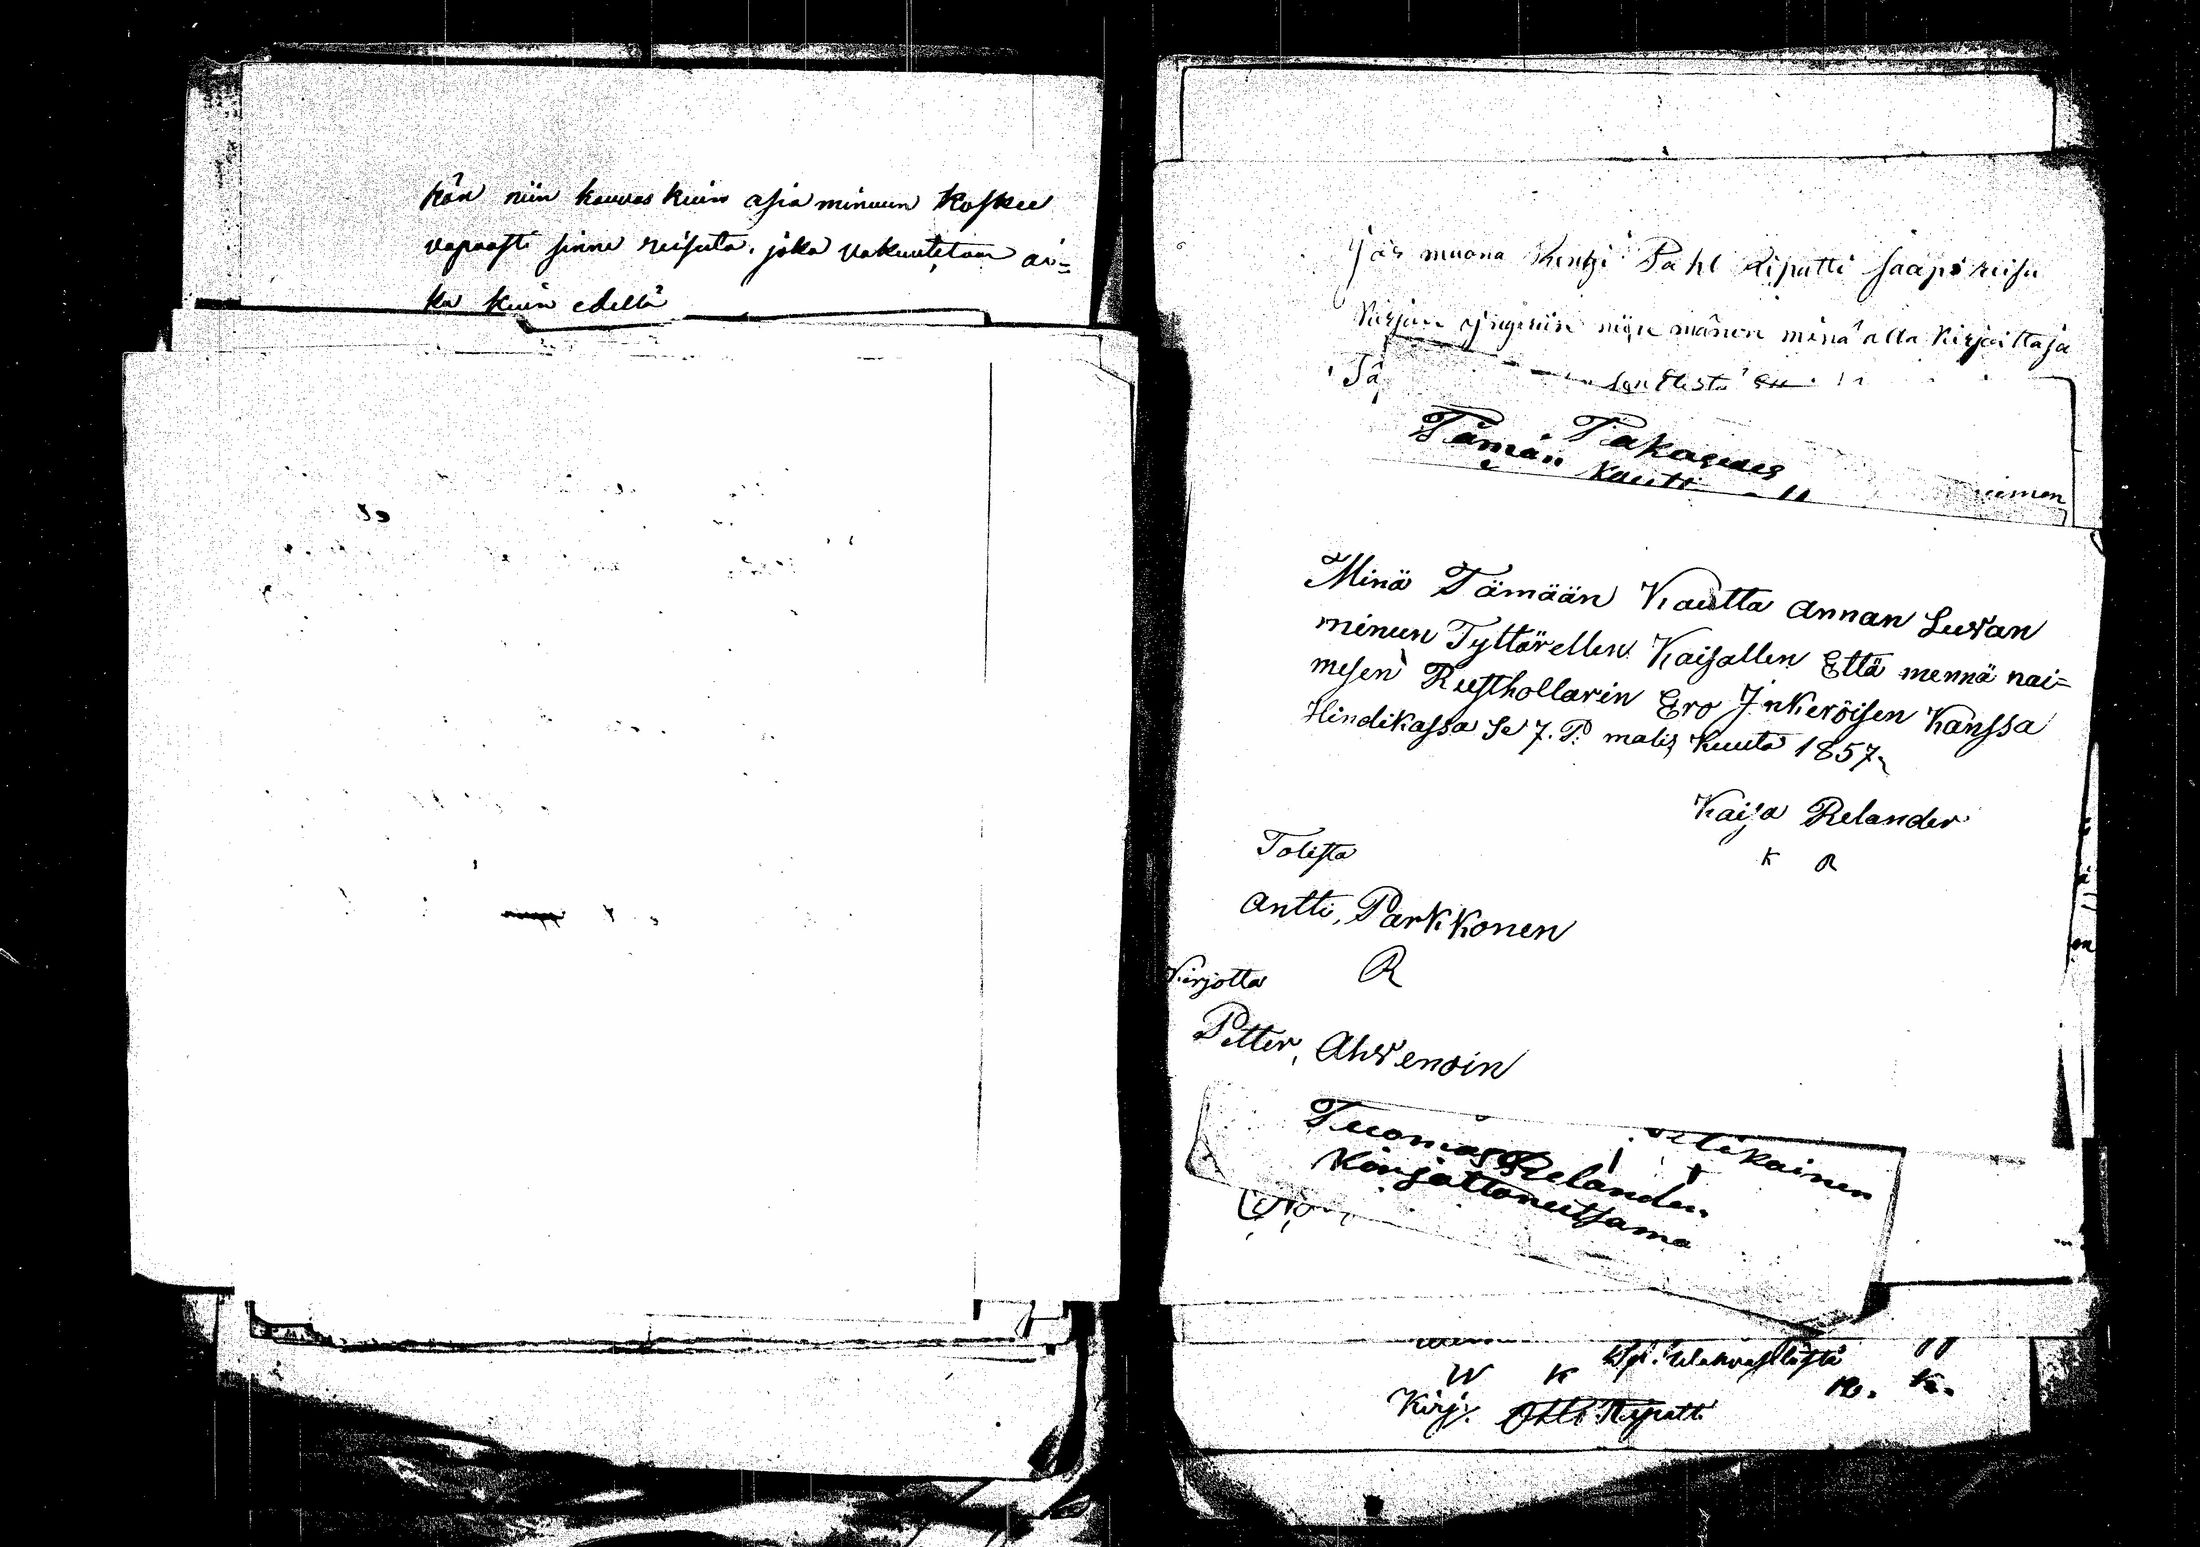 kön niin kauvas kuin asia minuun koskee
vapaasti sinne reisuta. joka vakuutetaan ai=
ka kuin edellä
Jos muona Renki Pahl Ripatti saapi reisu
Kirjan mänen minä alla Kirjoittaja
Tä
Takaus
Tämän Kautt
uiman
Minä Tämään Kautta annan Luvan
minun Tyttärellen Kaisallen Että mennä nai=
mesen Rusthollarin Ero Inkeröisen Kanssa
Hindikassa Se 7. P. malis Kuuta 1857
Kaisa Relander
K R
Tolista
Antti, Parkkonen
R
Kirjotta
Petter, Ahvenoin
tikainen
Tuomas Relander
Kirjottanutsama
W K
R. K.
Kirj. Ripatti